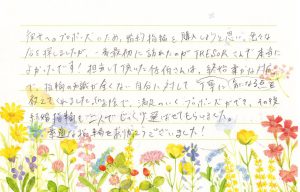 彼女へのプロポーズのため、婚約指輪を購入しようと思い、色々な
店を探しましたが、一番最初に訪れたのがTRESORさんで本当に
よかったです！担当して頂いた佐伯さんは、終始穏やかな
で、指輪の知識が全くない自分に対して丁寧に気になる点を
教えてくれました。お陰で、満足のいくプロポーズができ、その後
結婚指輪も二人でじっくり選ばせてもらいました。
幸運な指輪をありがとうございました！